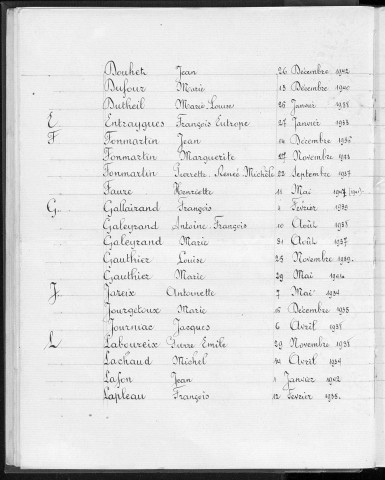 Douhet Jean 26 Décembre 1942
Dufour Marie 13 Décembre 1940
Dutheil Marie-Louise 26 Janvier 1938
E Entraygues François Eutrope 27 Janvier 1933
F Fonmartin Jean 14 Décembre 1935
Fonmartin Marguerite 27 Novembre 1933
Fonmartin Pierrette Renée Michèle 22 Septembre 1937
Faure Henriette 18 Mai
G Gallairand François 4 Février 1939
Galeyrand Antoine François 10 Août 1938
Galeyrand Marie 31 Août 1937
Gauthier Louise 25 Novembre 1939
Gauthier Marie 29 Mai 1940
J Jareix Antoinette 7 Mai 1934
Jourgetoux Marie 15 Décembre 1935
Journiac Jacques 6 Avril 1938
L Laboureix Pierre Emile 29 Novembre 1938
Lachaud Michel 14 Avril 1934
Lafon Jean 1 Janvier 1942
Lapleau François 12 Février 1938.